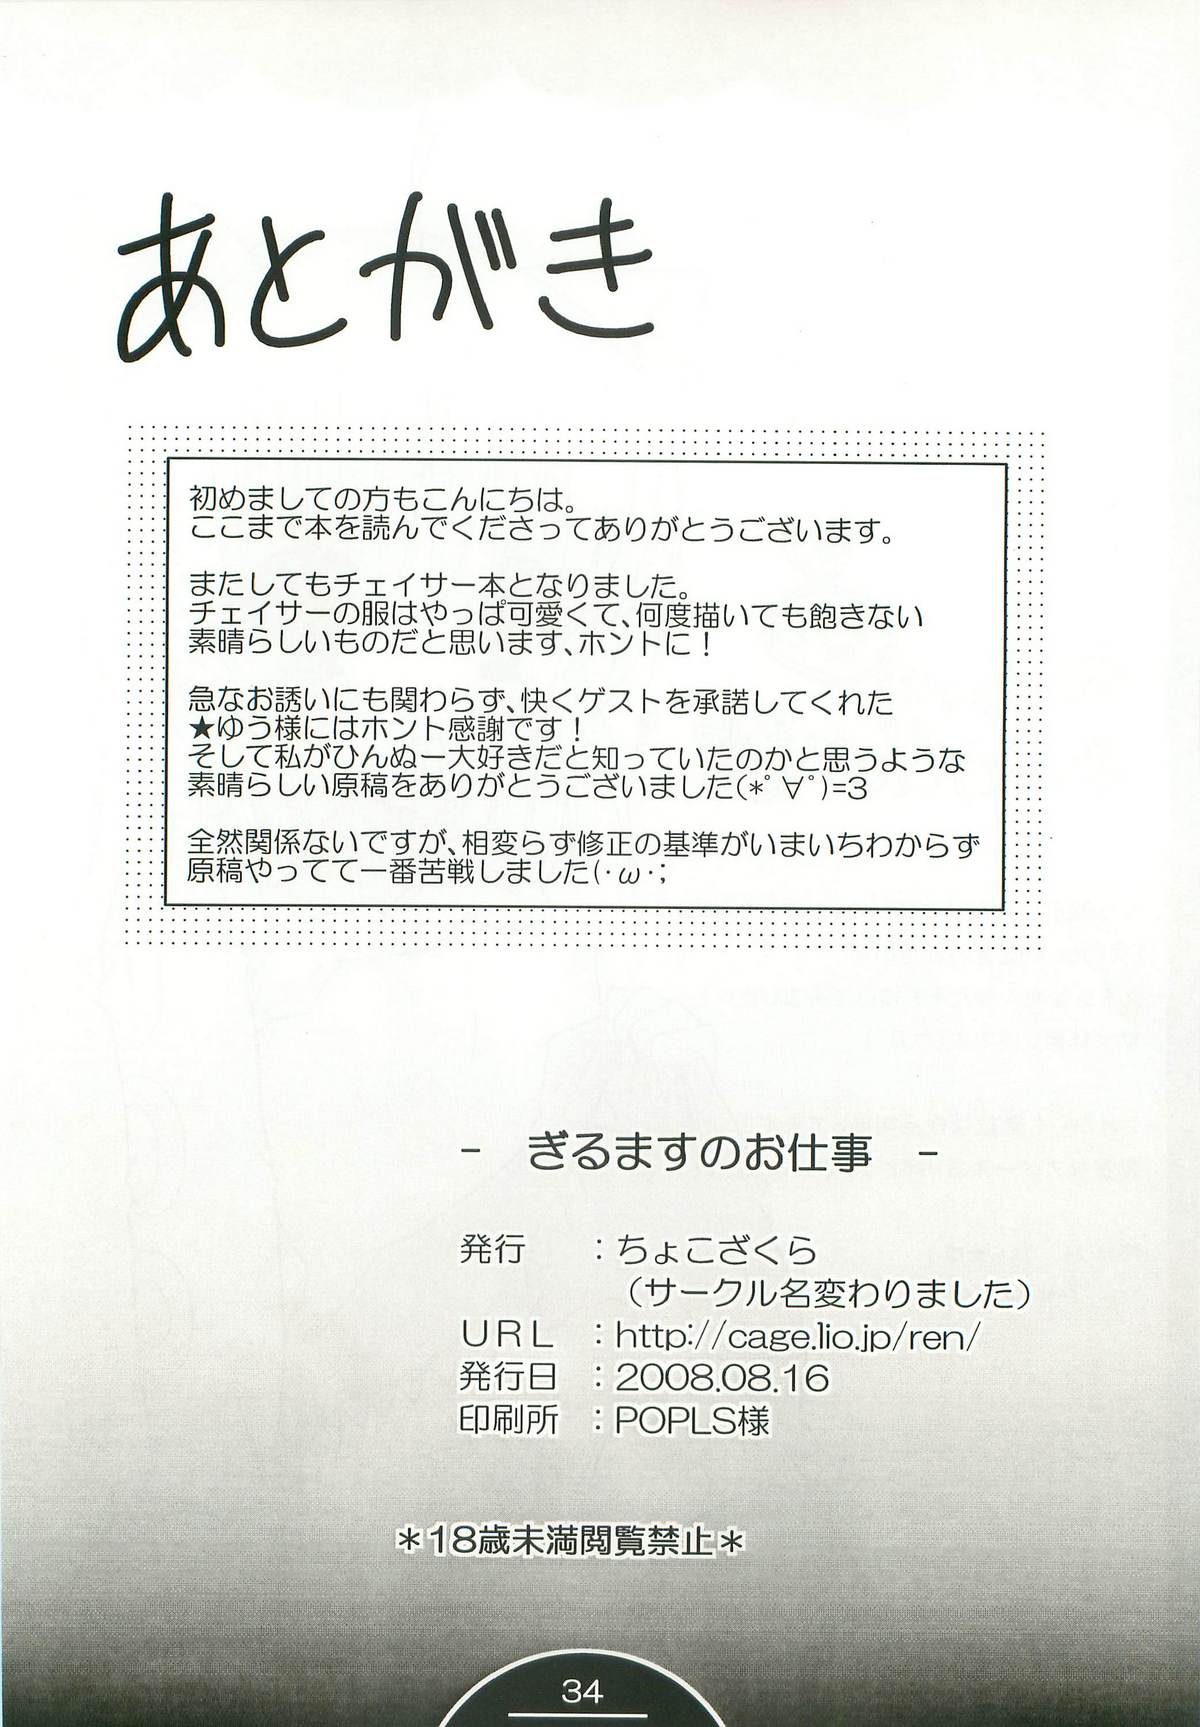 あとがき
初めましての方もこんにちは。
ここまで本を読んでくださってありがとうございます。
またしてもチェイサー本となりました。
チェイサーの服はやっぱ可愛くて、何度描いても飽きない
素晴らしいものだと思います、ホントに！
急なお誘いにも関わらず、快くゲストを承諾してくれた
★ゆう様にはホント感謝です！
そして私がひんぬー大好きだと知っていたのかと思うような
素晴らしい原稿をありがとうございました(*ﾟ∀ﾟ)=3
全然関係ないですが、相変らず修正の基準がいまいちわからず
原稿やってて一番苦戦しました(･ω･;
- ぎるますのお仕事 -
発行 ：ちょこざくら
（サークル名変わりました）
ＵＲＬ ：http://cage.lio.jp/ren/
発行日 ：2008.08.16
印刷所 ：POPLS様
＊18歳未満閲覧禁止＊
34